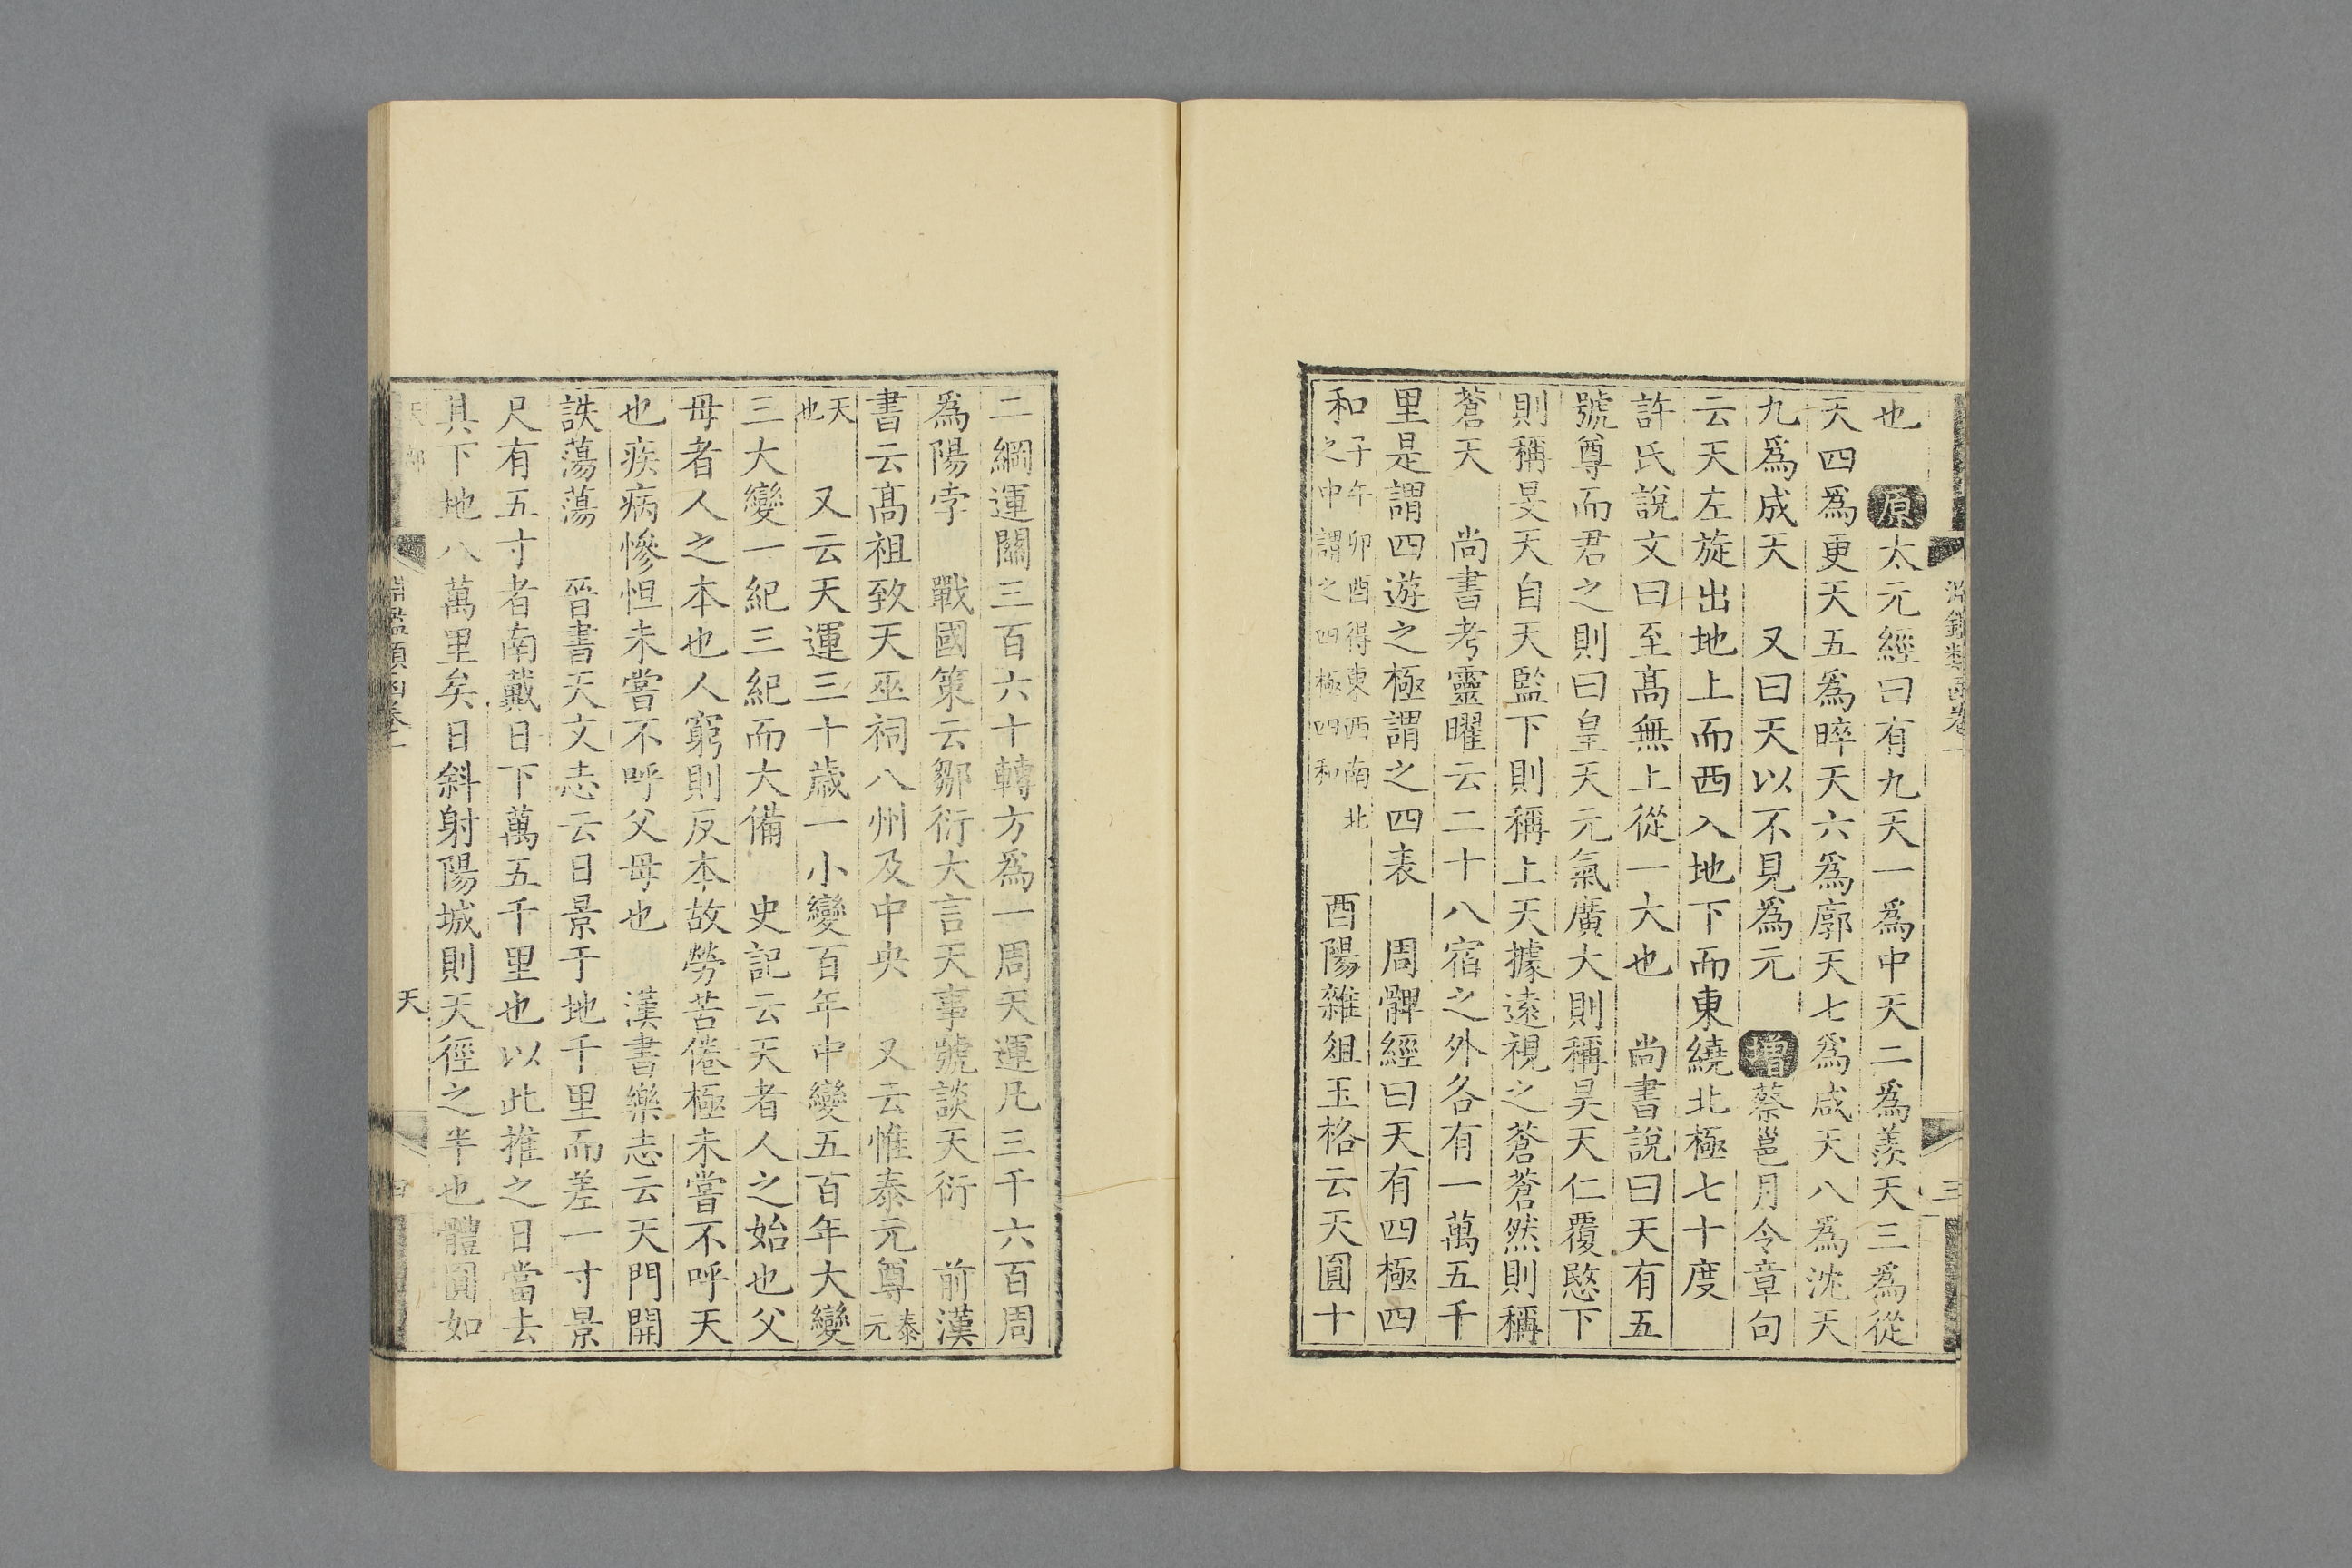 淵鑑類函卷一
三
也 原太元經曰有九天一爲中天二爲羨天三爲從
天四爲更天五爲晬天六爲廓天七爲咸天八爲沈天
九爲成天 又曰天以不見爲元 增蔡邕月令章句
云天左旋出地上而西入地下而東繞北極七十度
許氏說文曰至髙無上從一大也 尚書說曰天有五
號尊而君之則曰皇天元氣廣大則稱昊天仁覆愍下
則稱旻天自天監下則稱上天據逺視之蒼蒼然則稱
蒼天 尚書考靈曜云二十八宿之外各有一萬五千
里是謂四遊之極謂之四表 周髀經曰天有四極四
和子午卯酉得東西南北之中謂之四極四和 酉陽雜俎玉格云天圓十
二綱運關三百六十轉方爲一周天運凡三千六百周
爲陽孛 戰國策云鄒衍大言天事號談天衍 前漢
書云髙祖致天巫祠八州及中央 又云惟泰元尊泰元
天也 又云天運三十歲一小變百年中變五百年大變
三大變一紀三紀而大備 史記云天者人之始也父
母者人之本也人窮則反本故勞苦倦極未嘗不呼天
也疾病慘怛未嘗不呼父母也 漢書樂志云天門開
詄蕩蕩 晉書天文志云日景于地千里而差一寸景
尺有五寸者南戴日下萬五千里也以此推之日當去
其下地八萬里矣日斜射陽城則天徑之半也體圓如
天部
淵鑑類函卷一
天
四